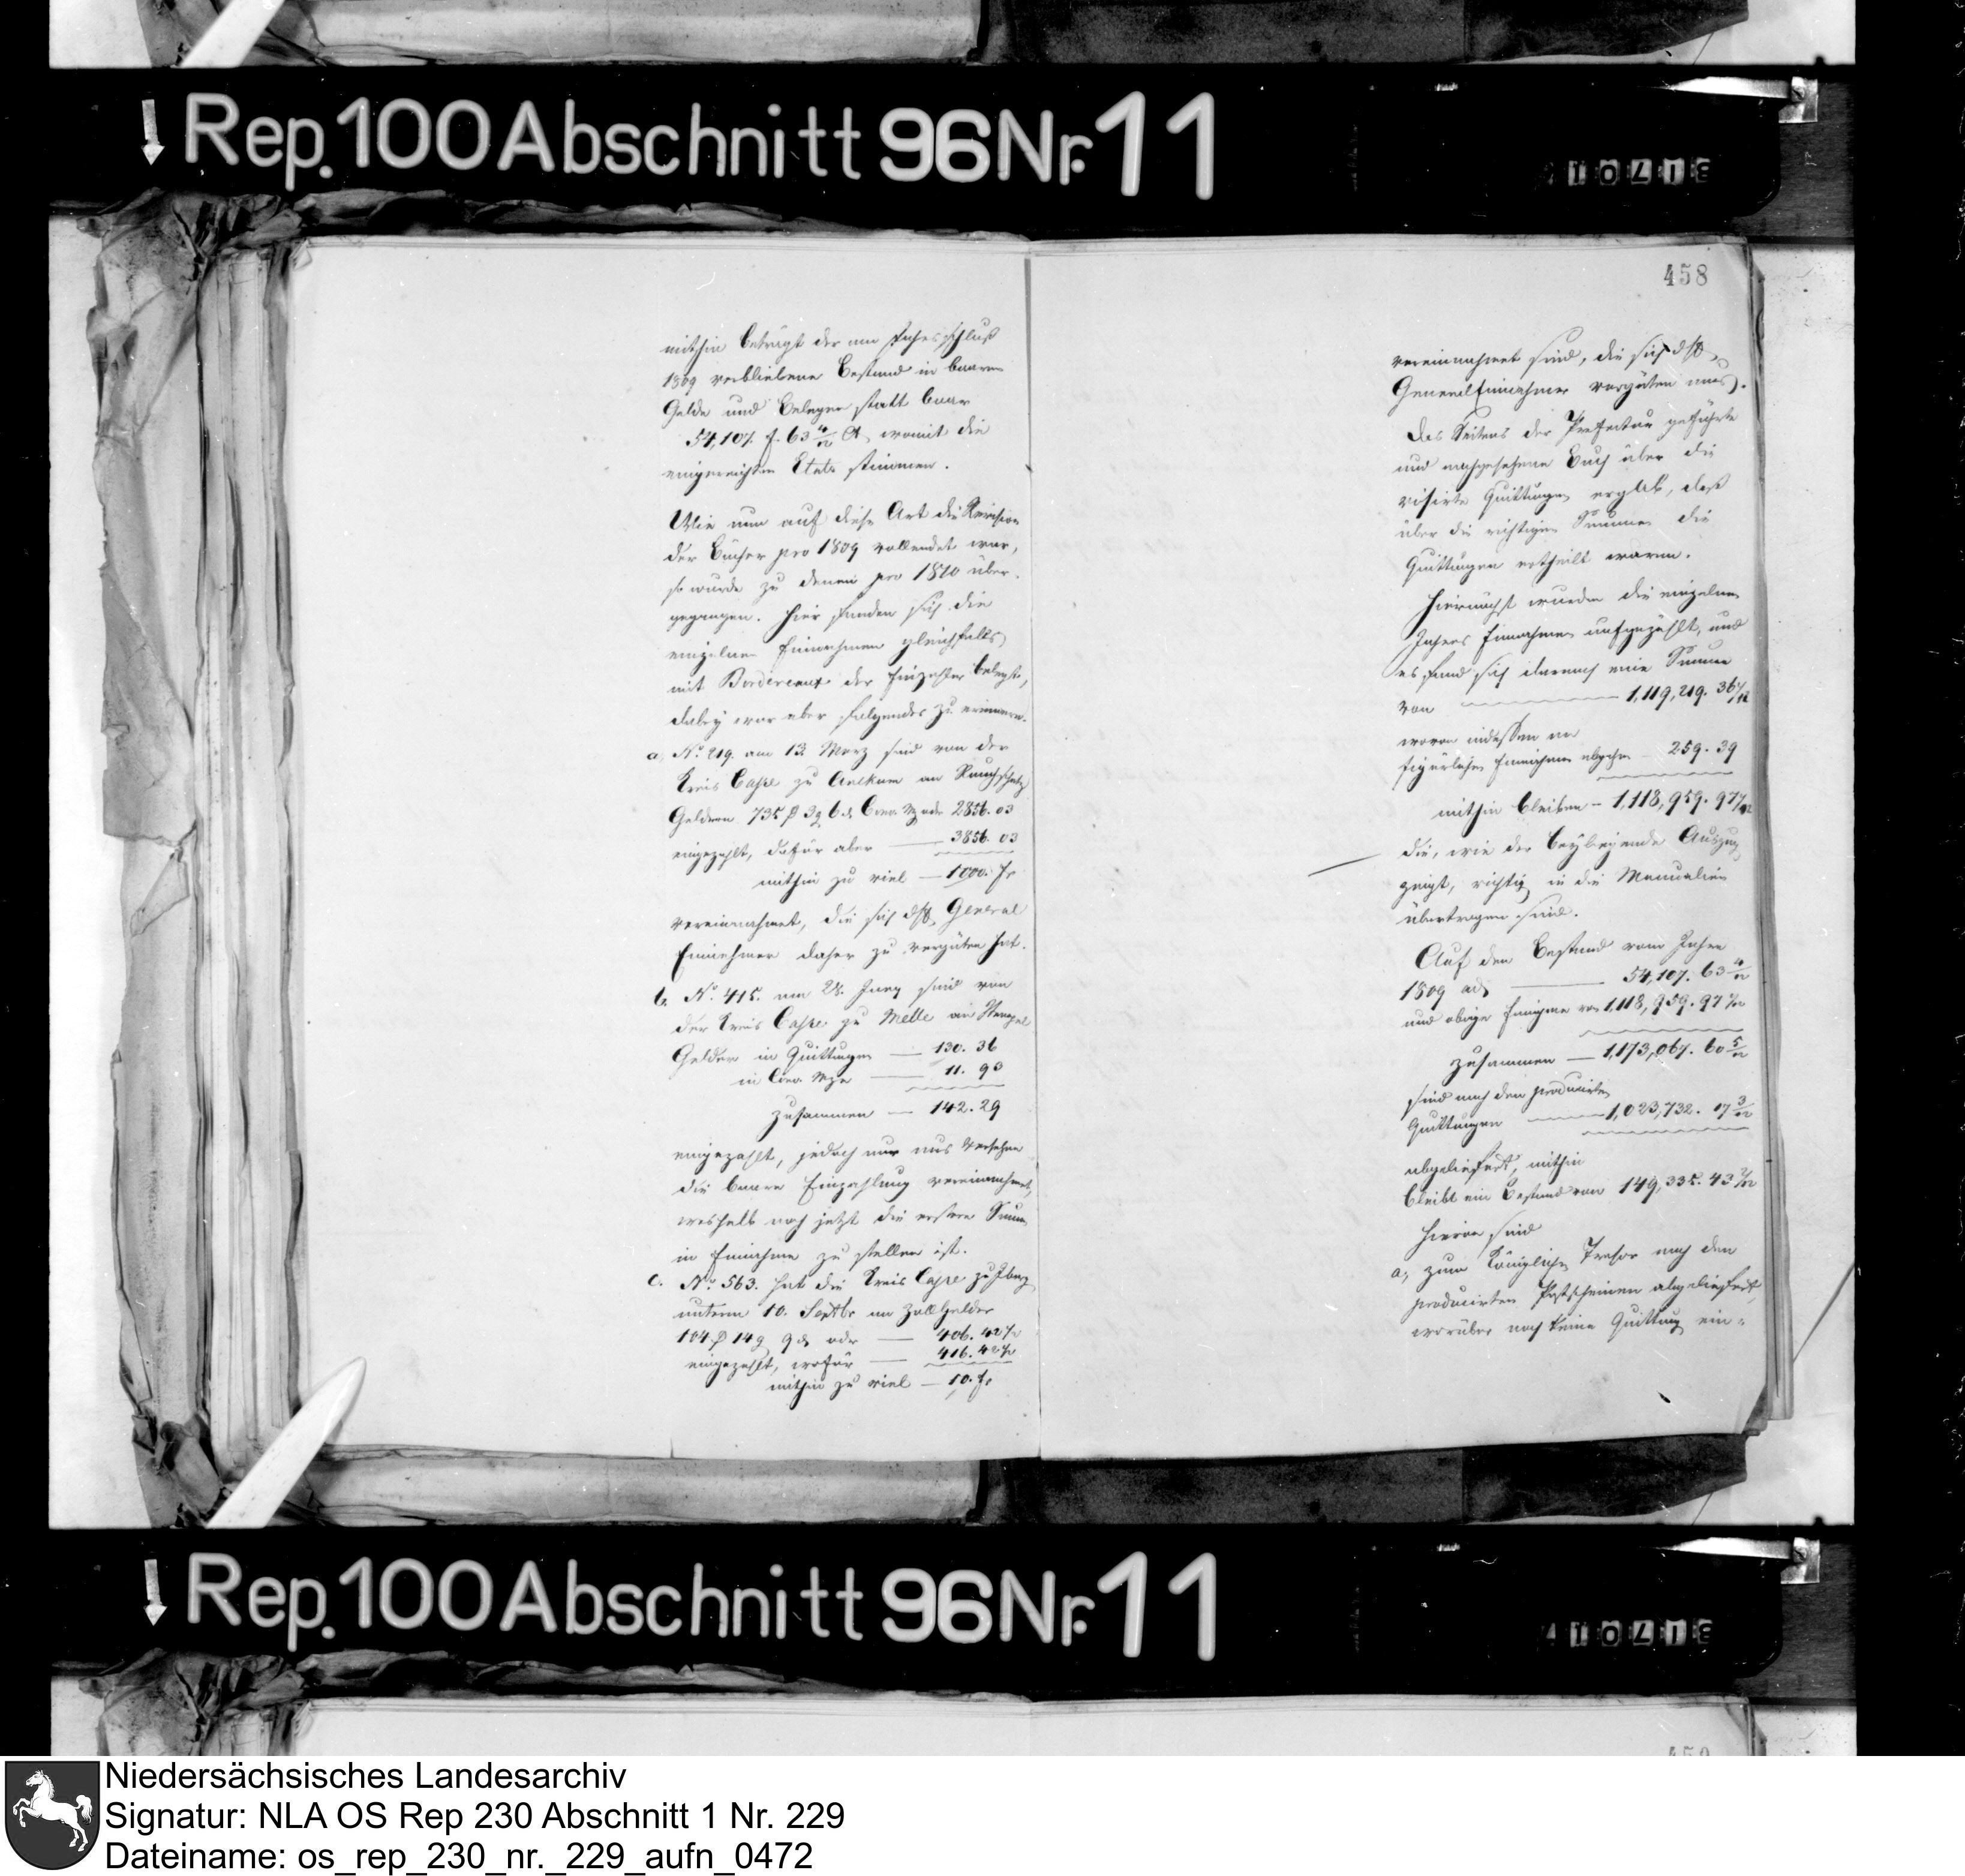 Rep. 100 Abschnitt 96 Nr. 11
mithin beträgt der am Jahresschluß
1809 verbliebene Bestand in baarem
Gelde und Belegen statt baar
54,107. f. 63 4/12 Ct, womit die
eingereichten Etats stimmen.
Wie nun auf diese Art die Revision
der Bücher pro 1809 vollendet war,
so wurde zu denen pro 1810 über-
gegangen. Hier fanden sich die
einzelnen Einnahmen gleichfalls
mit Bordereaux der Einzahler belegt,
dabey war aber folgendes zu erinnern.
a, No. 219. am 13. Merz sind von der
Kreis Casse zu Ankum an Rauchschatz
Geldern 735 3 6 Conv. Mz oder 2856. 03
eingezahlt, dafür aber 3856. 03
mithin zu viel — 1000. fr
vereinnahmet, die sich General
Einnehmer daher zu vergüten hat.
b, No. 415. am 28. Juny sind von
der Kreis Casse zu Melle an Stempel
Geldern in Quittungen — 130. 36
in Conv. Mze — 11. 93
zusammen — 142. 29
eingezahlt, jedoch nur aus Versehen
die baare Einzahlung vereinnahmet,
weshalb noch jetzt die erstere Summe
in Einnahme zu stellen ist.
c. No. 563. hat die Kreis Casse zu Iburg
unterm 10. Septbr an Zollgelder
104 14 9 oder — 406. 42
eingezahlt, wofür — 416. 42
mithin zu viel — 10. fr
458
vereinnahmet sind, die sich
General Einnehmer vergüten muß.
Das Seitens der Prefectur geführte
und nachgesehene Buch über die
visirte Quittungen ergab, daß
über die richtigen Summen die
Quittungen ertheilt waren.
Hiernächst wurden die einzelnen
Jahres Einnahmen aufgezählt, und
es fand sich darnach eine Summe
von — 1,119,219. 36
wovon indessen an
figürlichen Einnahmen abgehen — 259. 39
mithin bleiben — 1,118,959. 97
die, wie der beyliegende Auszug
zeigt, richtig in die Manualien
übertragen sind.
Auf den Bestand vom Jahre
1809 ad — 54,107. 63 4/12
und obige Einnahme von 1,118,959. 97
zusammen — 1,173,067. 60 5/12
sind nach den producirten
Quittungen — 1,023,732. 17 3/12
abgeliefert, mithin
bleibt ein Bestand von 149,335. 43 2/12
Hievon sind
a, zum Königlichen Tresor nach den
producirten Postscheinen abgeliefert,
worüber noch keine Quittung ein-
Rep. 100 Abschnitt 96 Nr. 11
Niedersächsisches Landesarchiv
Signatur: NLA OS Rep 230 Abschnitt 1 Nr. 229
Dateiname: os_rep_230_nr._229_aufn_0472